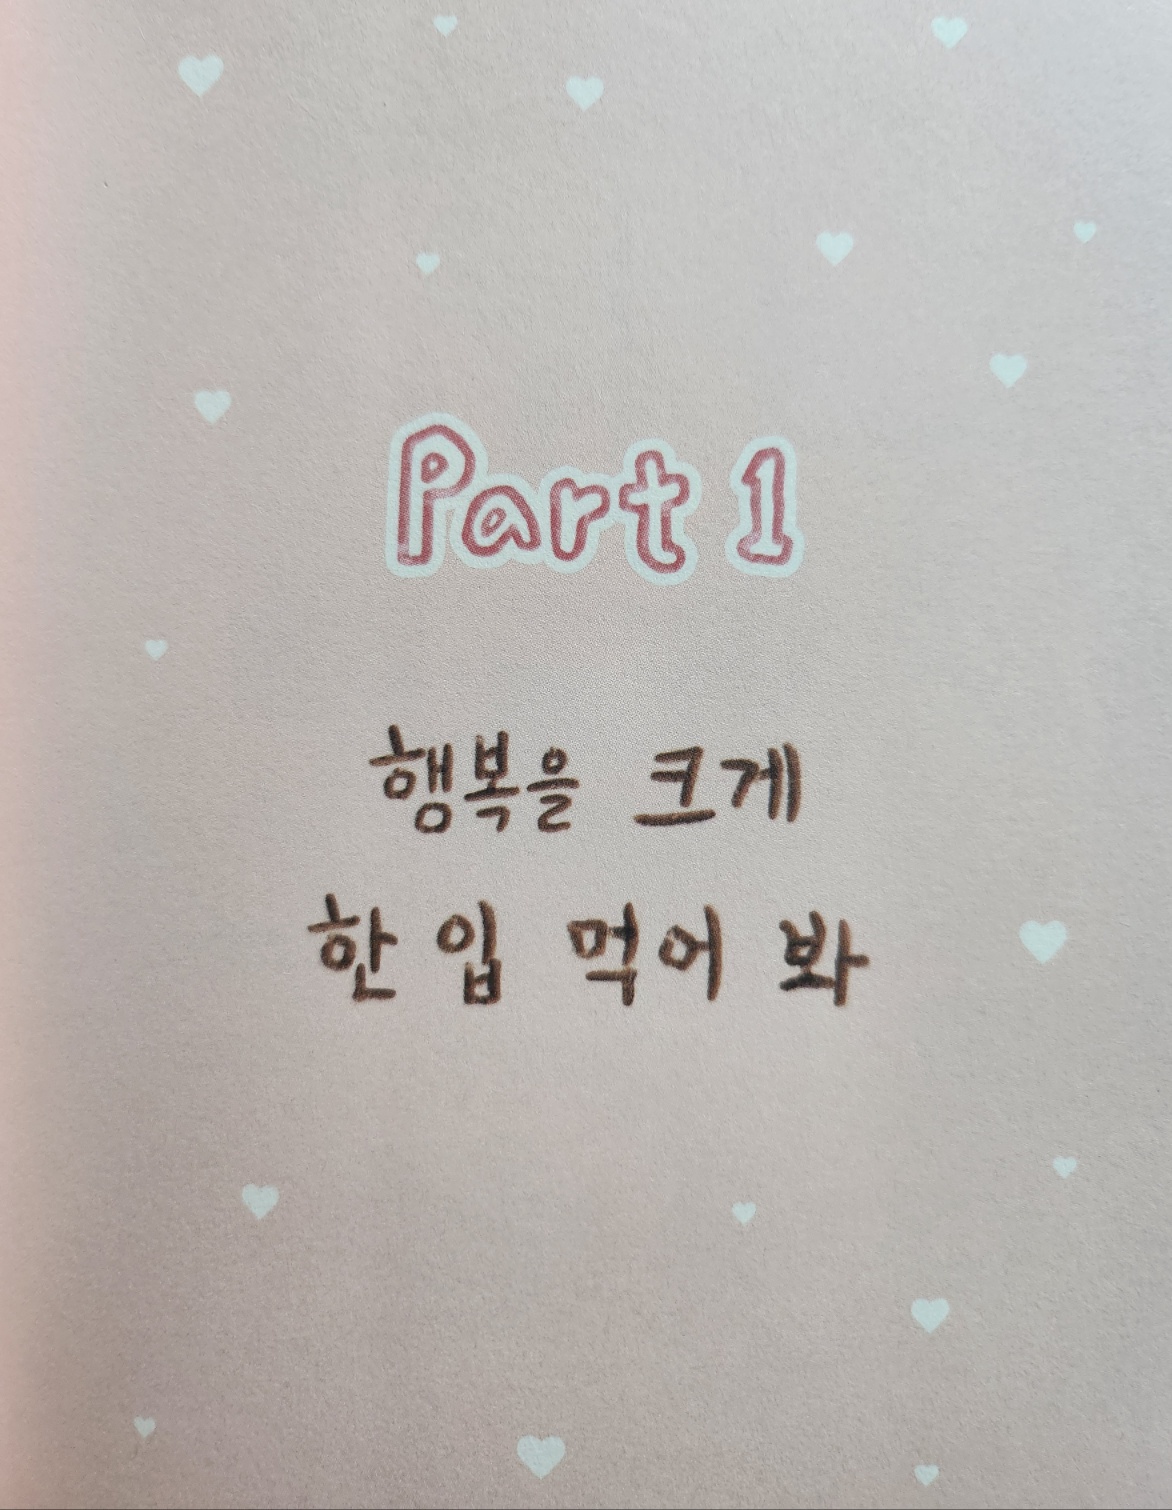 Part 1
행복을 크게
한 입 먹어 봐